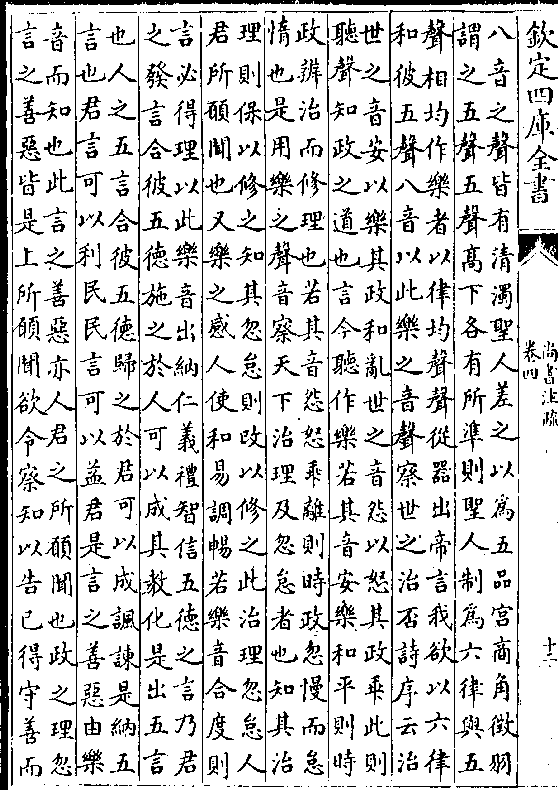 欽定四庫全書
尚書注疏
卷四
八音之聲皆有清濁聖人差之以為五品宮商角徵羽
謂之五聲五聲高下各有所準則聖人制為六律與五
聲相均作樂者以律均聲聲從器出帝言我欲以六律
和彼五聲八音以此樂之音聲察世之治否詩序云治
世之音安以樂其政和亂世之音怨以怒其政乖此則
聽聲知政之道也言今聽作樂若其音安樂和平則時
政辨治而修理也若其音怨怒乖離則時政忽慢而怠
惰也是用樂之聲音察天下治理及忽怠者也知其治
理則保以修之知其忽怠則改以修之此治理忽怠人
君所願聞也又樂之感人使和易調暢若樂音合度則
言必得理以此樂音出納仁義禮智信五德之言乃君
之發言合彼五德施之於人可以成其教化是出五言
也人之五言合彼五德歸之於君可以成諷諫是納五
言也君言可以利民民言可以益君是言之善惡由樂
音而知也此言之善惡亦人君之所願聞也政之理忽
言之善惡皆是上所願聞欲令察知以告己得守善而